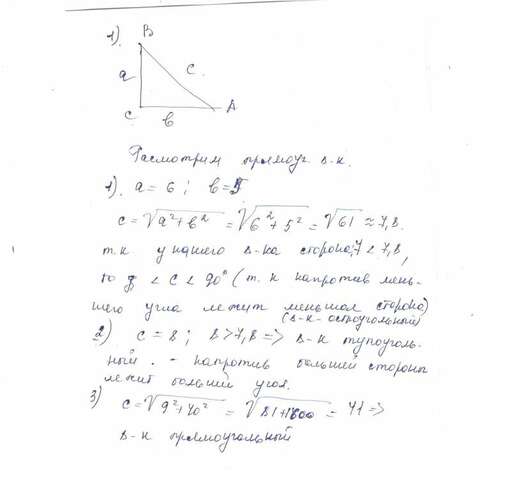 1).
B
a
c
C
b
A
Расмотрим прямоуг. в-к.
1). a = 6; b = 5
c = √a²+b² = √6²+5² = √61 ≈ 7,8.
т.к у нашего в-ка сторона 7 < 7,8,
то < C < 90° (т.к напротив мень-
шего угла лежит меньшая сторона)
(в-к- остроугольный)
2) c = 8; 8 > 7,8 => в-к тупоуголь-
ный. - напротив большей стороны
лежит больший угол.
3) c = √9²+40² = √81+1600 = 41 =>
в-к прямоугольный